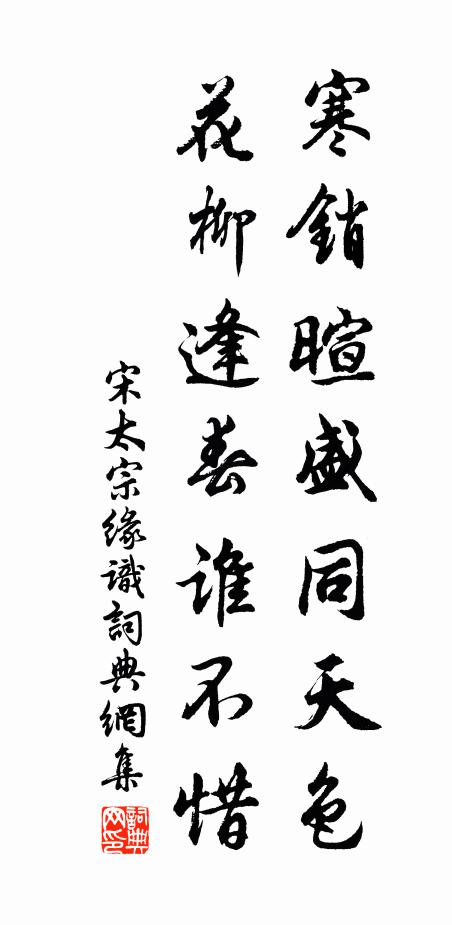 寒銷暄盛同天色
花柳逢春誰不惜
宋太宗緣識詞典網集
詞典網印